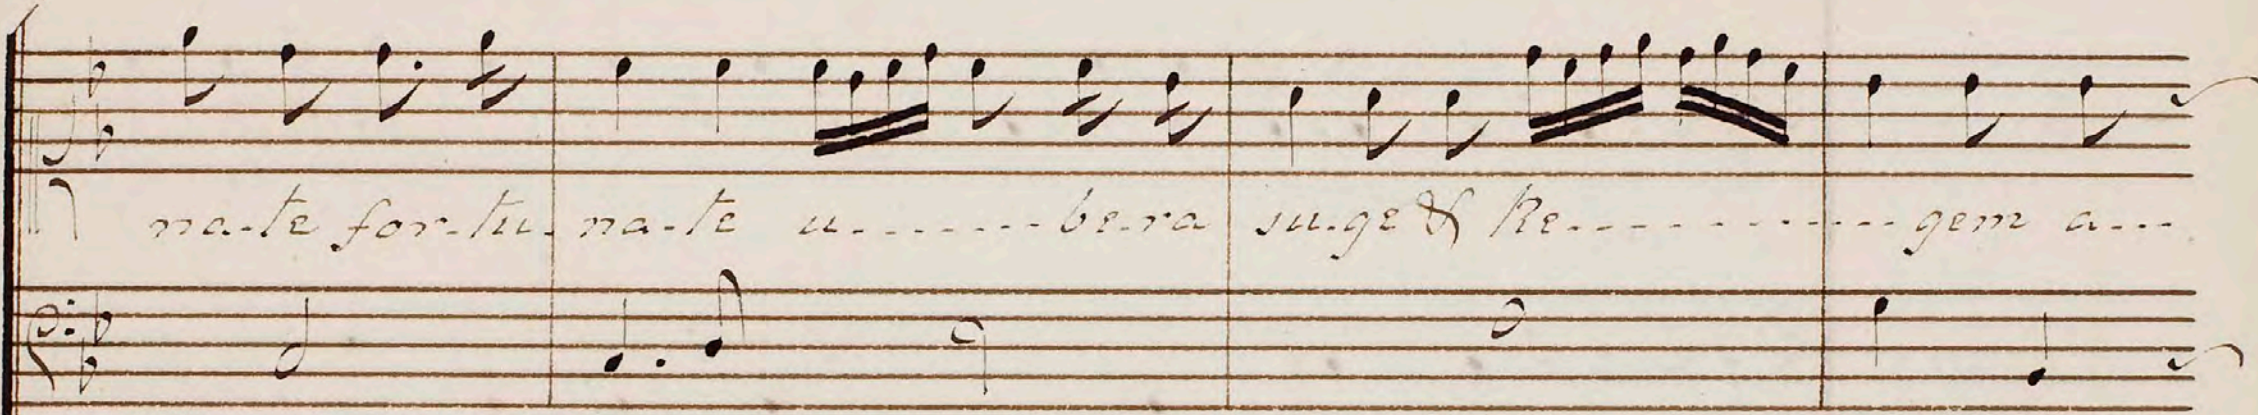 na-te for-tu-na-te u---------be-ra su-ge & Re------------gem a---